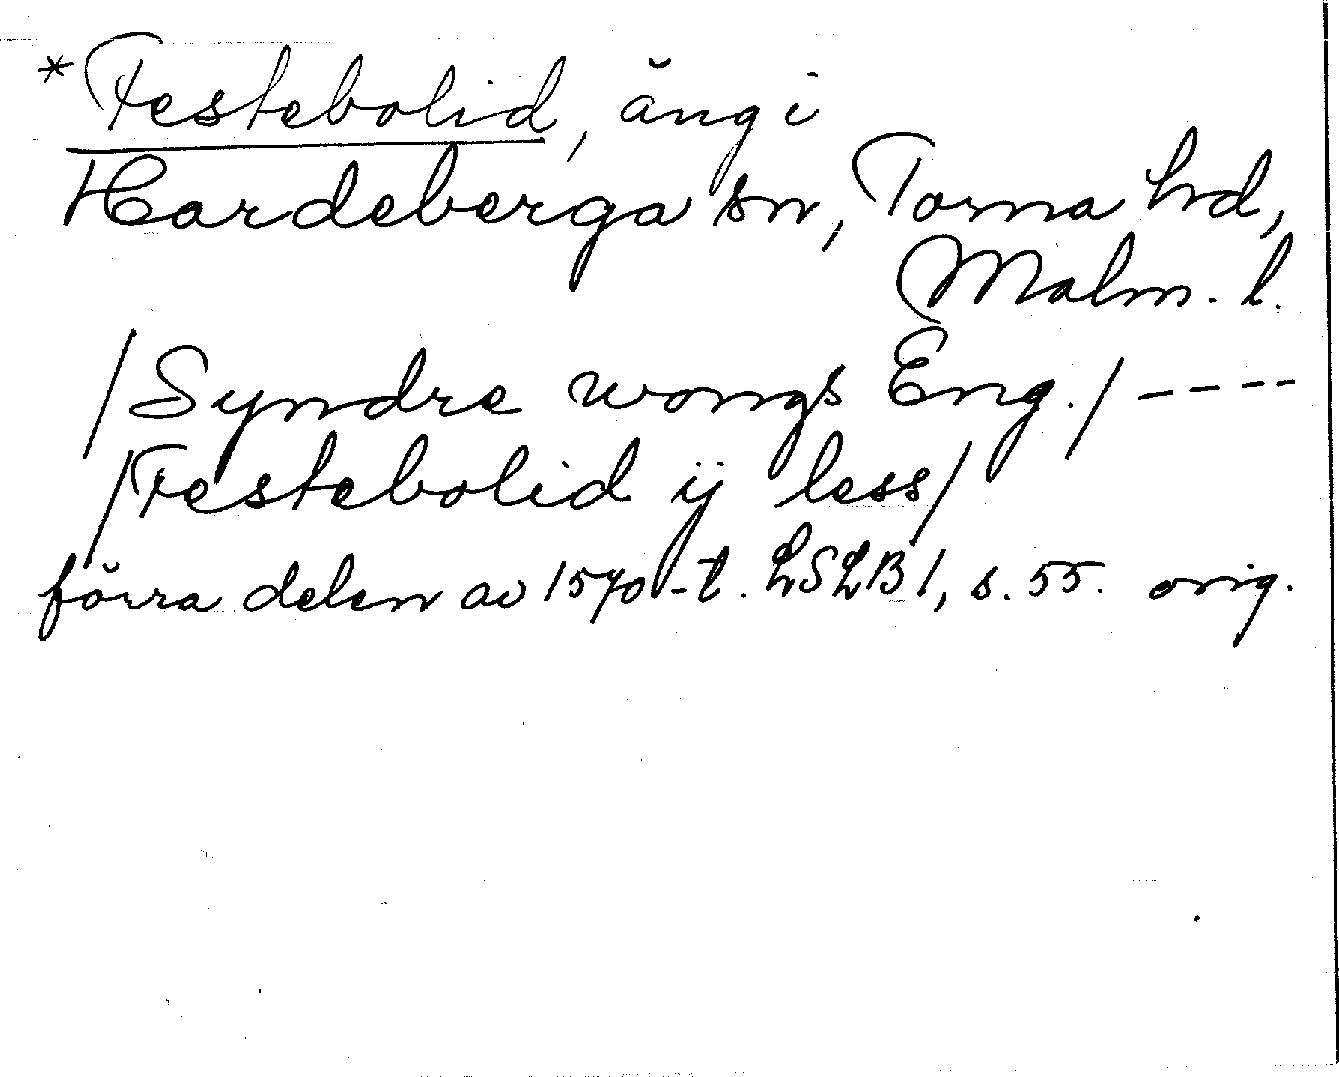 *Festebolid, äng i
Hardeberga sn, Torna hd,
Malm. l.
/Syndre wongs Eng./ ----
/Festebolid ij less/
förra delen av 1570-t. LSLB 1, s. 55. orig.